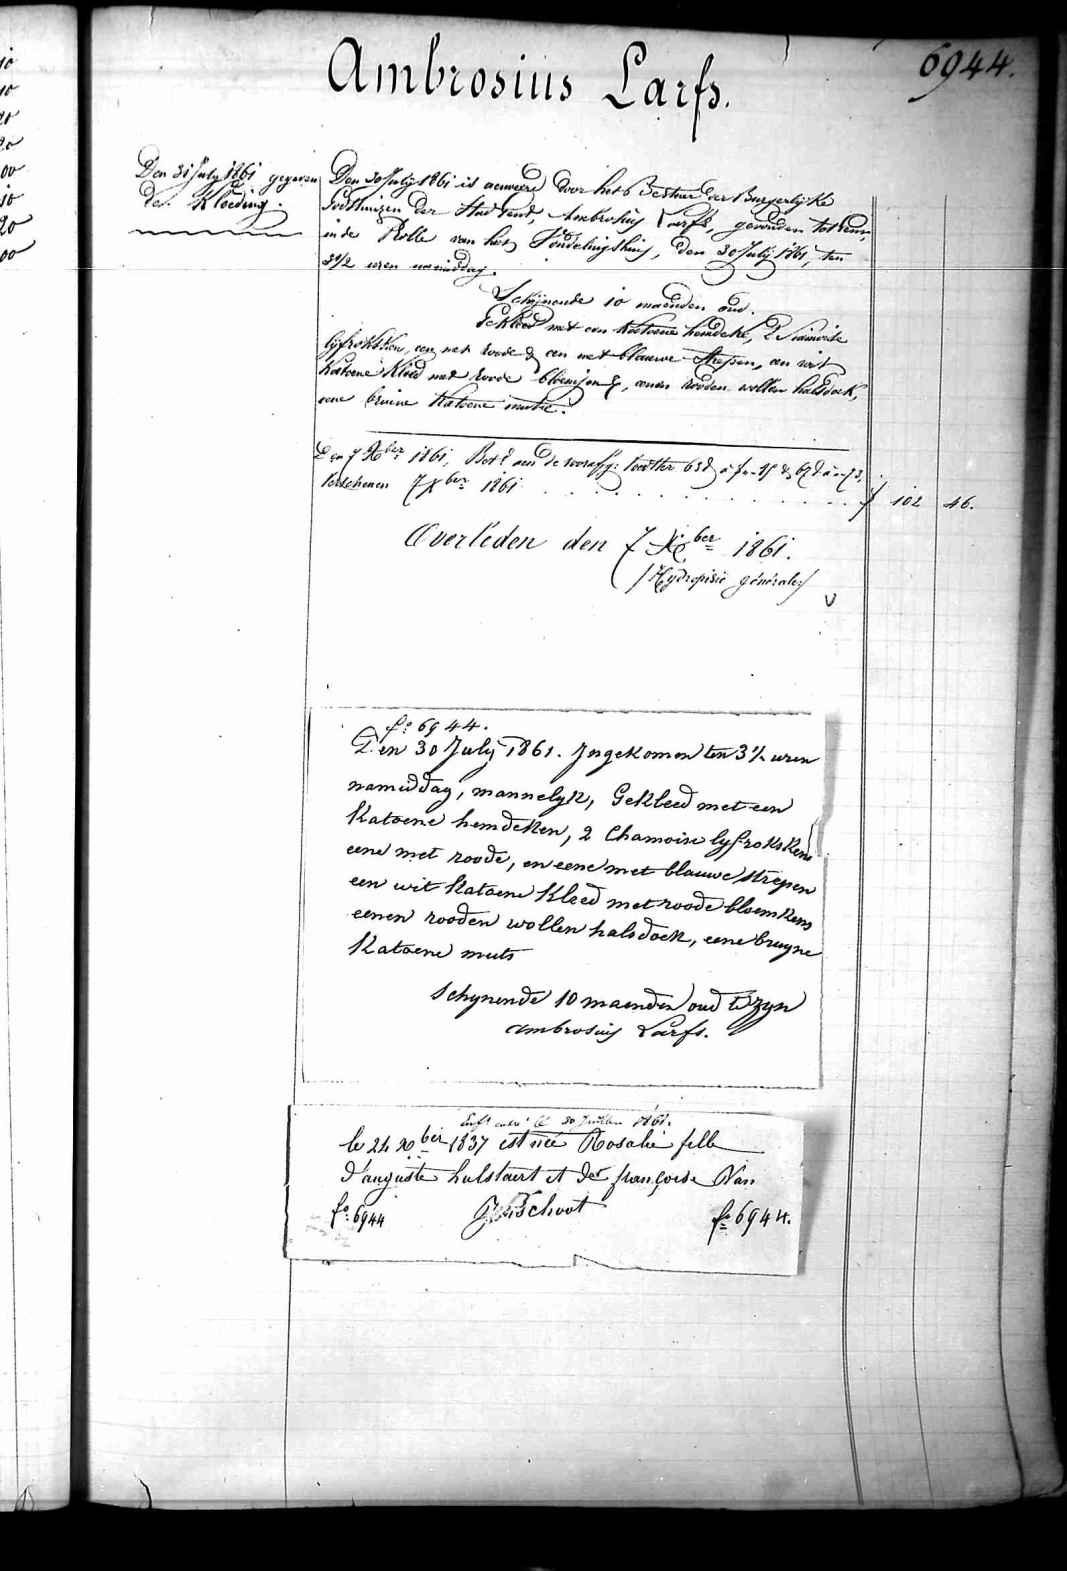 Ambrosius Larfs.
6944.
Den 31 July 1861 gegeven
de Kleeding.
Den 30 July 1861 is aenveerd door het Bestuer der Burgerlyke
Godshuizen der Stad Gend, Ambrosius Larfs, gevonden tot Gend,
in de Rolle van het Vondelingshuis, den 30 July 1861, ten
3 1/2 uren namiddag.
Schijnende 10 maenden oud.
Gekleed met een katoene hemdeke, 2 Siamoise
lyfrokskens, een met roode & een met blauwe strepen, een wit
katoene kleed met roode bloemjens, eenen rooden wollen halsdoek,
eene bruine katoene mutse.
Den 7 Xber 1861, Bet. aen de
verschenen 7 Xber 1861 . . . . . . . . . . . . f 102 46.
Overleden den 7 Xber 1861.
(Hydropisie générale)
fo. 6944.
Den 30 July 1861. Ingekomen ten 3 1/2 uren
namiddag, mannelyk, Gekleed met een
Katoene hemdeken, 2 Chamoise lyfrokskens
eene met roode, en eene met blauwe strepen
een wit Katoene Kleed met roode bloemkens
eenen rooden wollen halsdoek, eene bruyne
Katoene muts
Schynende 10 maenden oud te zyn
ambrosius Larfs.
Enft entré le 30 Juillet 1861.
le 24 Xber 1837 est née Rosalie fille
d'auguste hulstaert et de françoise Van
fo. 6944
fo. 6944.